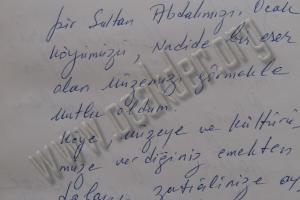 Pir Sultan Abdalımızı, Ocak
köyümüzü, Nadide bir eser
olan müzemizi görmekle
mutlu oldum.
Köye müzeye ve kültürü
müze verdiğiniz emekten
dolayı zatıâlinize